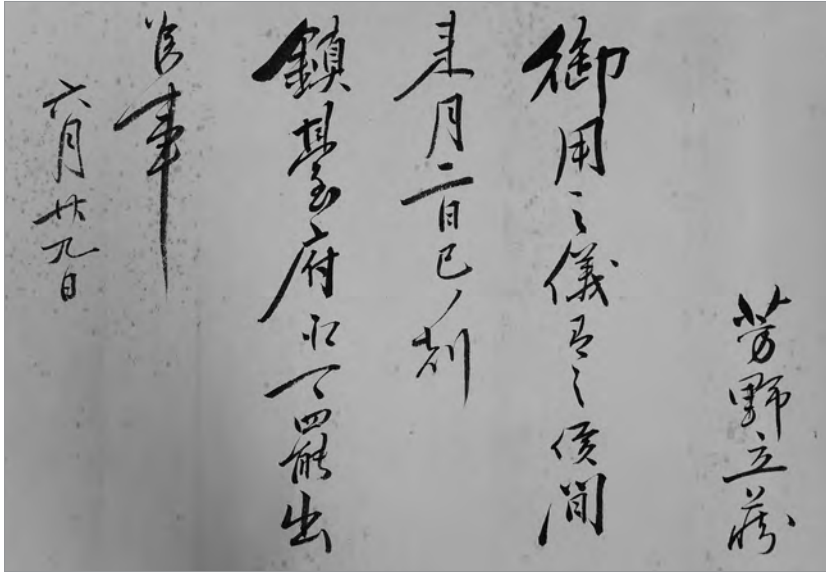 芳野立蔵
御用之儀有之候間
来月二日巳ノ刻
鎮臺府江可罷出
候事
六月廿九日